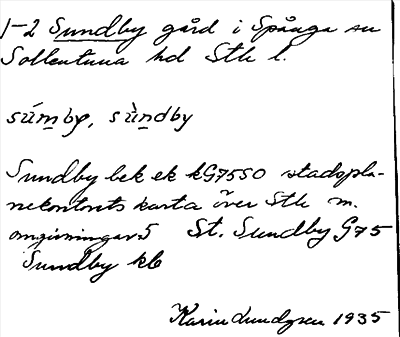 1-2 Sundby gård i Spånga sn
Sollentuna hd Sthlm l.
súmby, sùndby
Sundby bek ek kG7550 stadspla-
nekontorets karta över Sthlm m.
omgivningar5 St. Sundby G75
Sundby kb
Karin Lundgren 1935